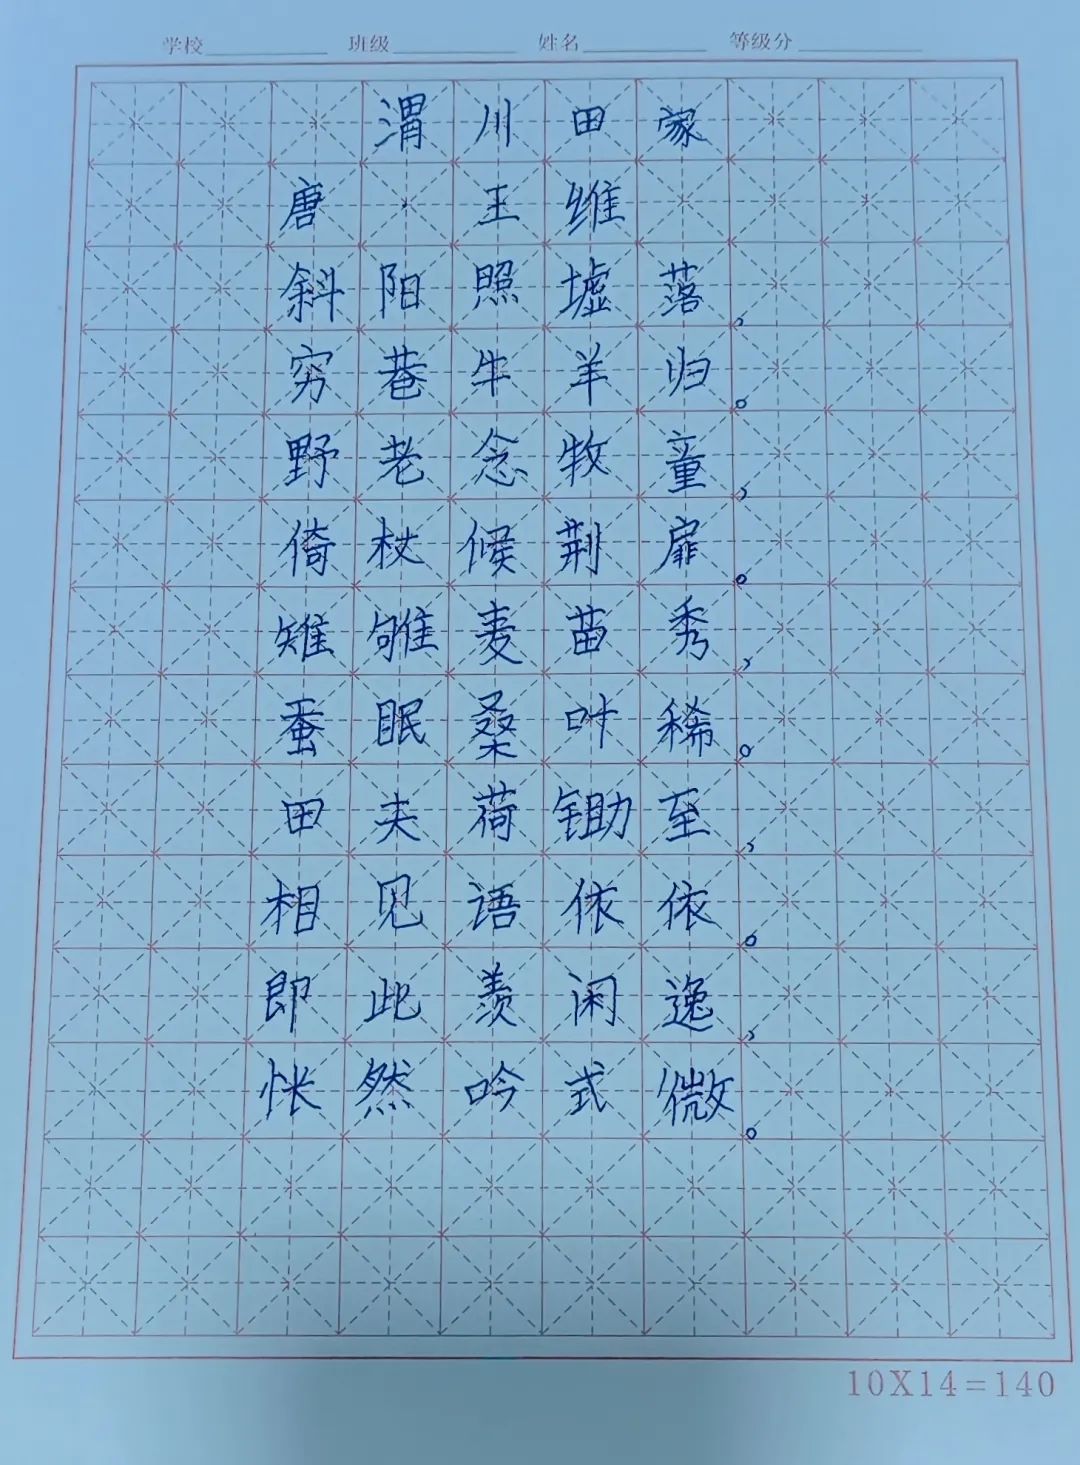 学校 班级 姓名 等级分
渭川田家
唐 王维
斜阳照墟落，
穷巷牛羊归。
野老念牧童，
倚杖候荆扉。
雉雊麦苗秀，
蚕眠桑叶稀。
田夫荷锄至，
相见语依依。
即此羡闲逸，
怅然吟式微。
10X14=140